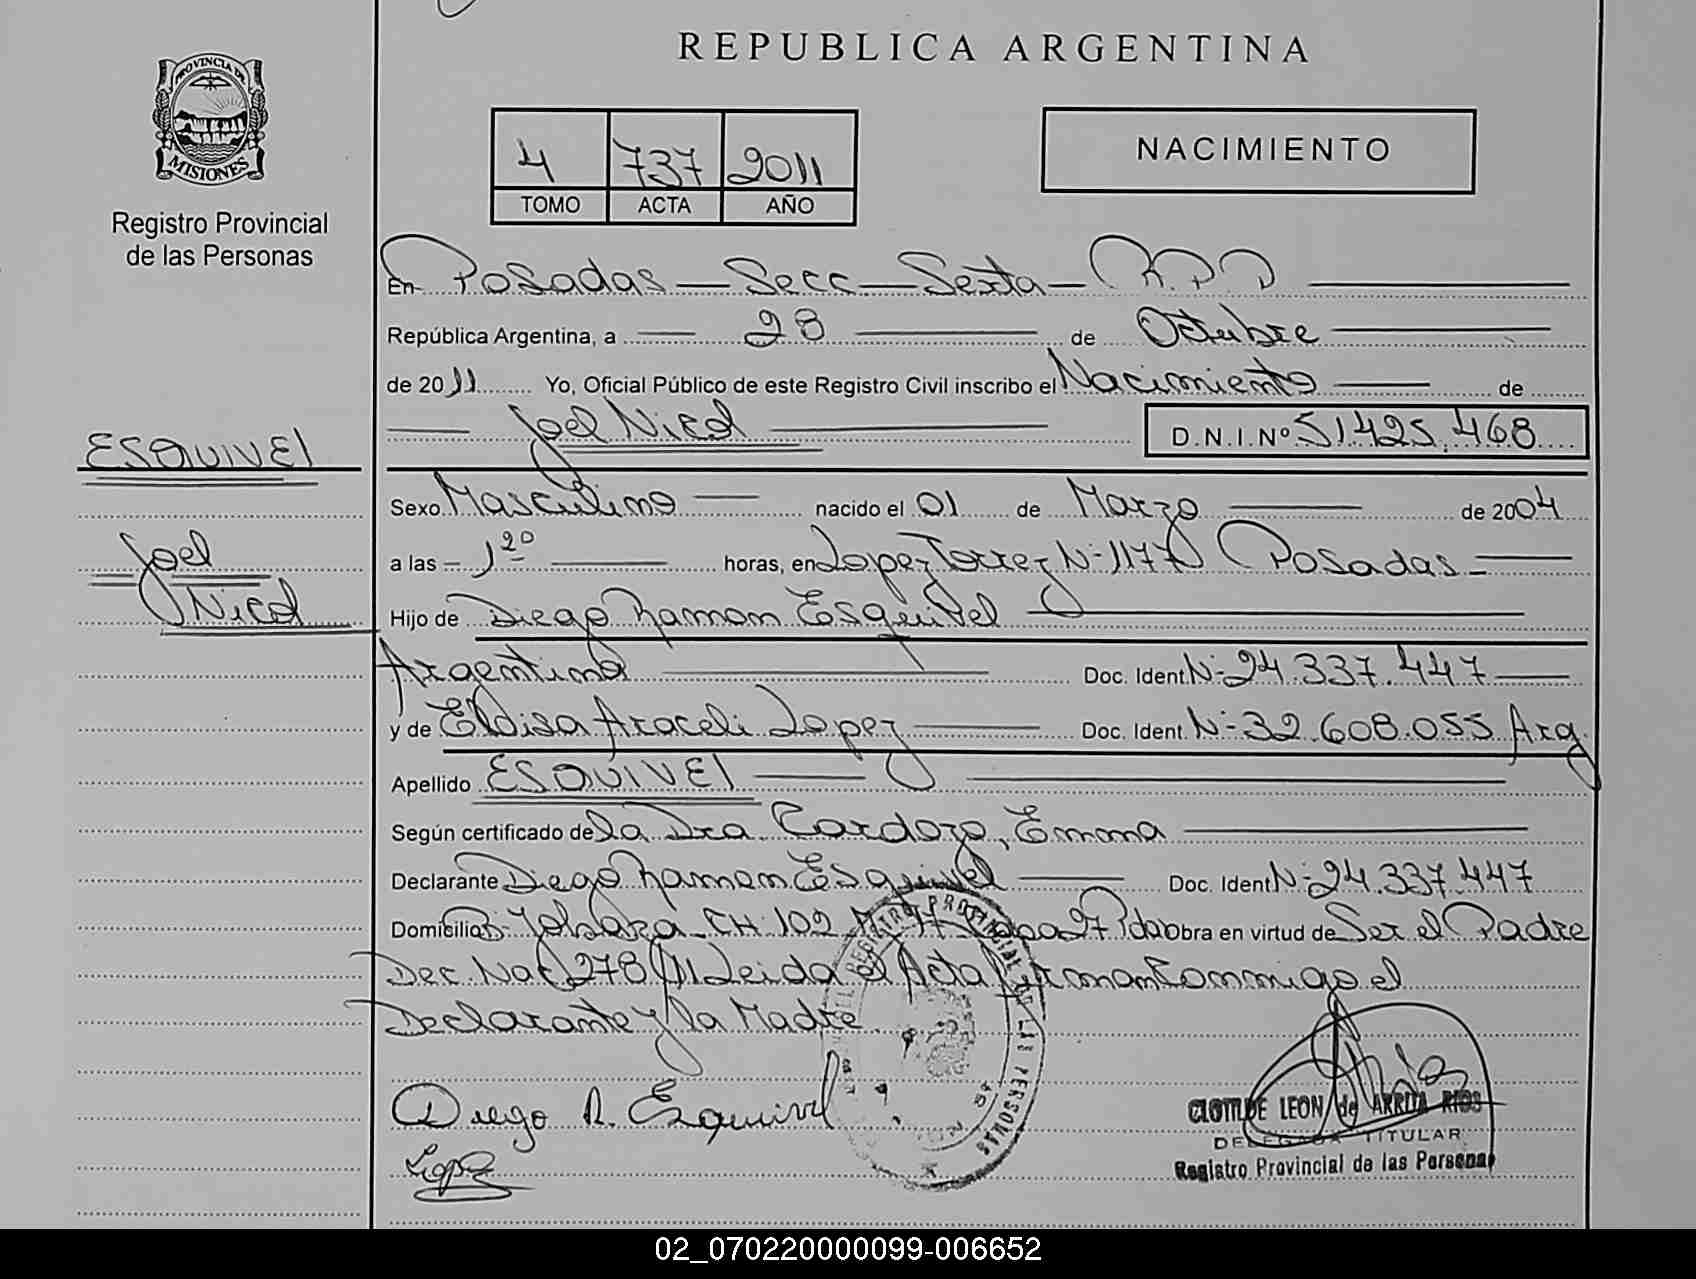 REPUBLICA ARGENTINA
PROVINCIA DE
MISIONES
Registro Provincial
de las Personas
4 737 2011
TOMO ACTA AÑO
NACIMIENTO
En Posadas — Secc — Sexta — R.P.P
República Argentina, a 28 de Octubre
de 2011 Yo, Oficial Público de este Registro Civil inscribo el Nacimiento de
Joel Nicol D.N.I.Nº 51.425.468
ESQUIVEl
Joel
Nicol
Sexo Masculino nacido el 01 de Marzo de 2004
a las 1²⁰ horas, en Lopez Torrez Nº 1177 Posadas
Hijo de Diego Ramon Esquivel
Argentina Doc. Ident. Nº 24.337.447
y de Eldisa Araceli Lopez Doc. Ident. Nº 32.608.055 Arg.
Apellido ESQUIVEl
Según certificado de la Dra. Cardozo, Emma
Declarante Diego Ramon Esquivel Doc. Ident. Nº 24.337.447
Domicilio CH. 102 obra en virtud de Ser el Padre
Dec. Nac 278/11 Leida el Acta firman conmigo el
Declarante y la Madre
Diego R. Esquivel
Lopez
REGISTRO PROVINCIAL DE LAS PERSONAS
CLOTILDE LEON de ARRITA RIOS
DELEGADA TITULAR
Registro Provincial de las Personas
02_070220000099-006652